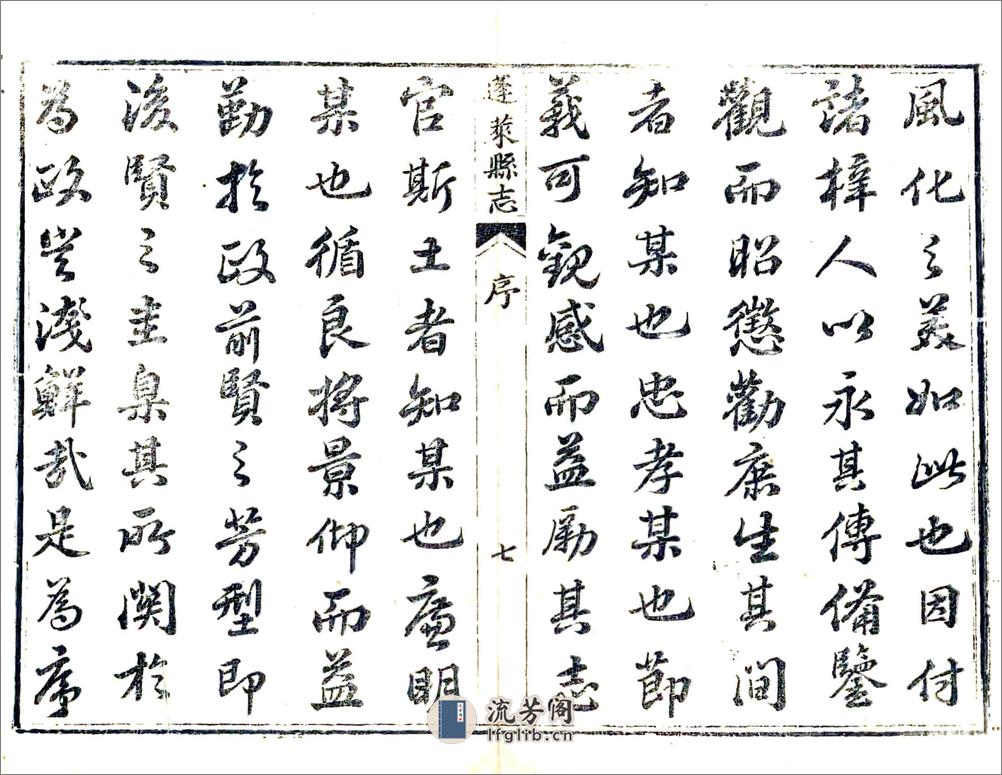 風化之美如此也因付
諸梓人以永其傳備鑒
觀而昭懲勸庶生其間
者知某也忠孝某也節
義可觀感而益勵其志
蓬萊縣志 序 七
官斯土者知某也廉明
某也循良將景仰而益
勤於政前賢之芳型即
後賢之圭臬其所関於
為政豈淺鮮哉是為序
流芳阁
lfglib.cn